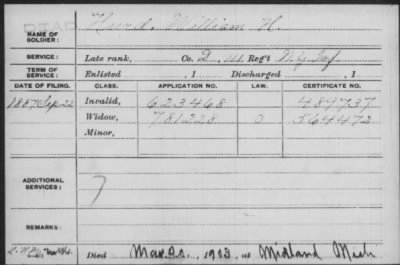 DEAD
Hurd, William H.
NAME OF SOLDIER:
SERVICE: Late rank, Co. D, 111 Reg't N.Y. Inf
TERM OF SERVICE: Enlisted , 1 Discharged , 1
DATE OF FILING. CLASS. APPLICATION NO. LAW. CERTIFICATE NO.
1887 Sep 22 Invalid, 623468 489737
Widow, 781228 0 564472
Minor,
ADDITIONAL SERVICES:
REMARKS:
Died 1903 at Midland Mich